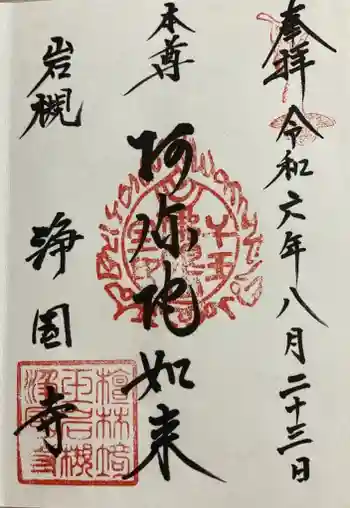 奉拝
令和六年八月二十三日
本尊
阿弥陀如来
岩槻
浄国寺